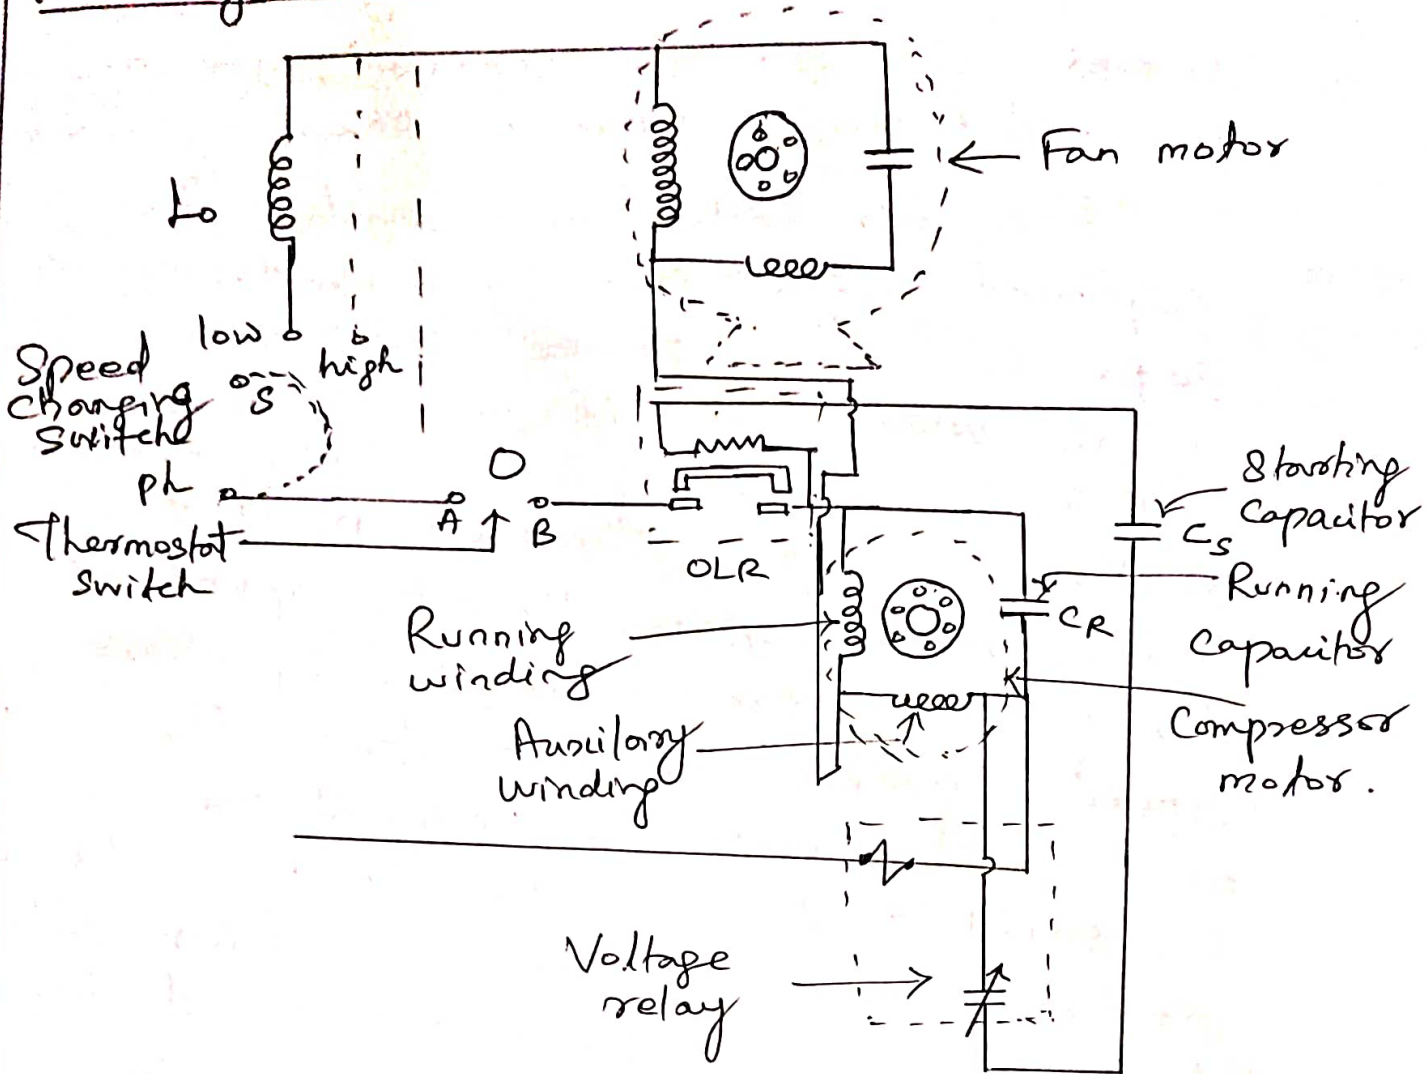 Fan motor
Lo
low
high
Speed
changing
switch
S
ph
O
A
B
Thermostat
switch
OLR
Starting
Capacitor
Cs
Running
Capacitor
CR
Running
winding
Auxilary
winding
Compressor
motor.
Voltage
relay